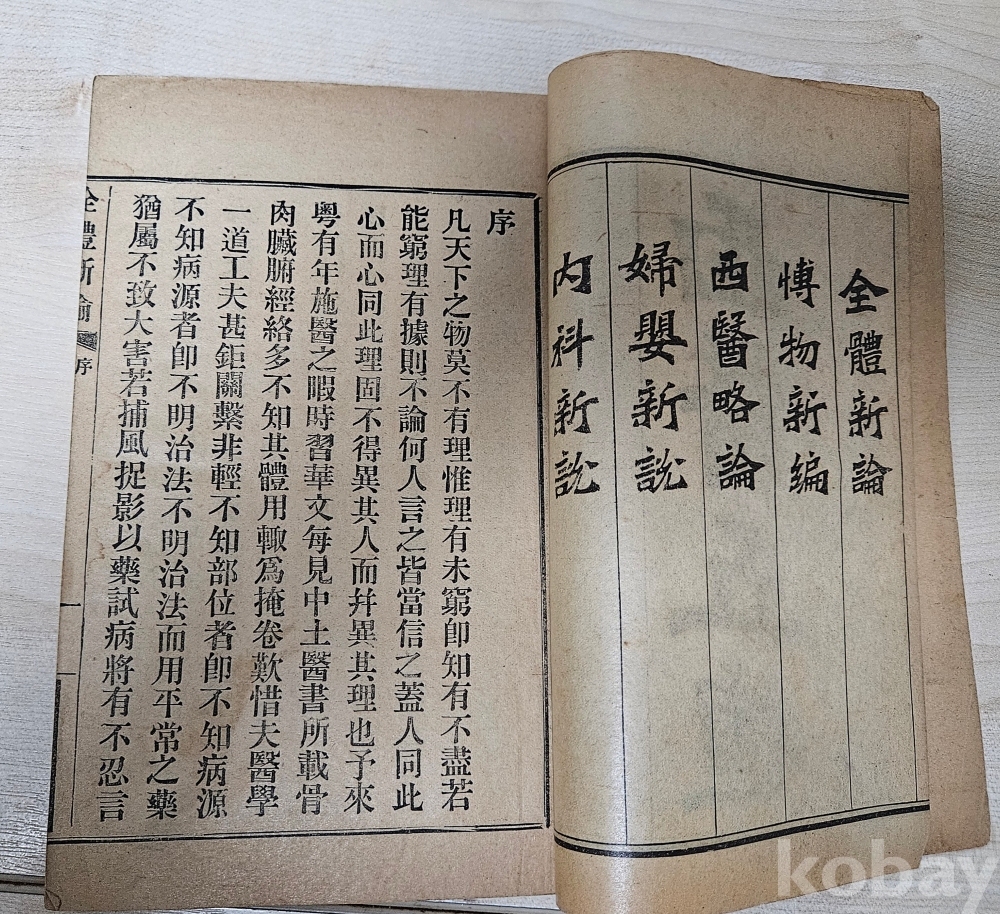 全體新論
博物新編
西醫略論
婦嬰新說
內科新說
序
凡天下之物莫不有理惟理有未窮卽知有不盡若
能窮理有據則不論何人言之皆當信之蓋人同此
心而心同此理固不得異其人而幷異其理也予來
粵有年施醫之暇時習華文每見中土醫書所載骨
肉臟腑經絡多不知其體用輒爲掩卷歎惜夫醫學
一道工夫甚鉅關繫非輕不知部位者卽不知病源
不知病源者卽不明治法不明治法而用平常之藥
猶屬不致大害若捕風捉影以藥試病將有不忍言
全體新論 序 一
kobay